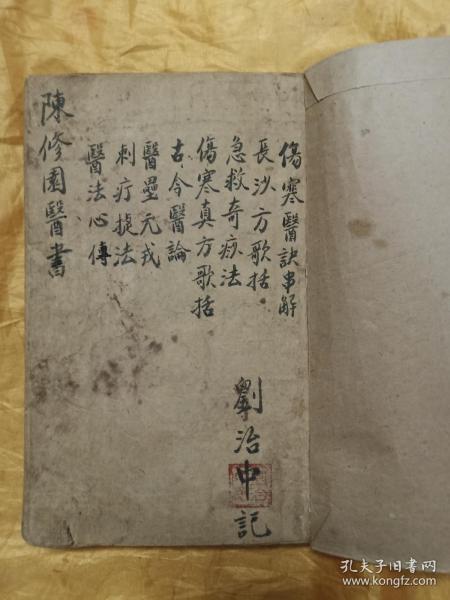 傷寒醫訣串解
長沙方歌括
急救奇痧法
傷寒真方歌括
古今醫論
醫壘元戎
刺疔捷法
醫法心傳
陳修園醫書
劉治申記
孔夫子旧书网
www.kongfz.com